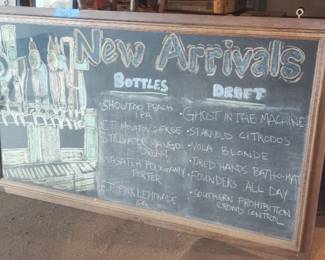 New Arrivals
BOTTLES
SHOUTING PEACH
IPA
STILLWATER
WASATCH POLYGAMY
PORTER
DRAFT
• GHOST IN THE MACHINE
• STARNOLD CITRODOS
• VOLA BLONDE
• TIRED HANDS
• FOUNDERS ALL DAY
• SOUTHERN PROHIBITION
CROWD CONTROL